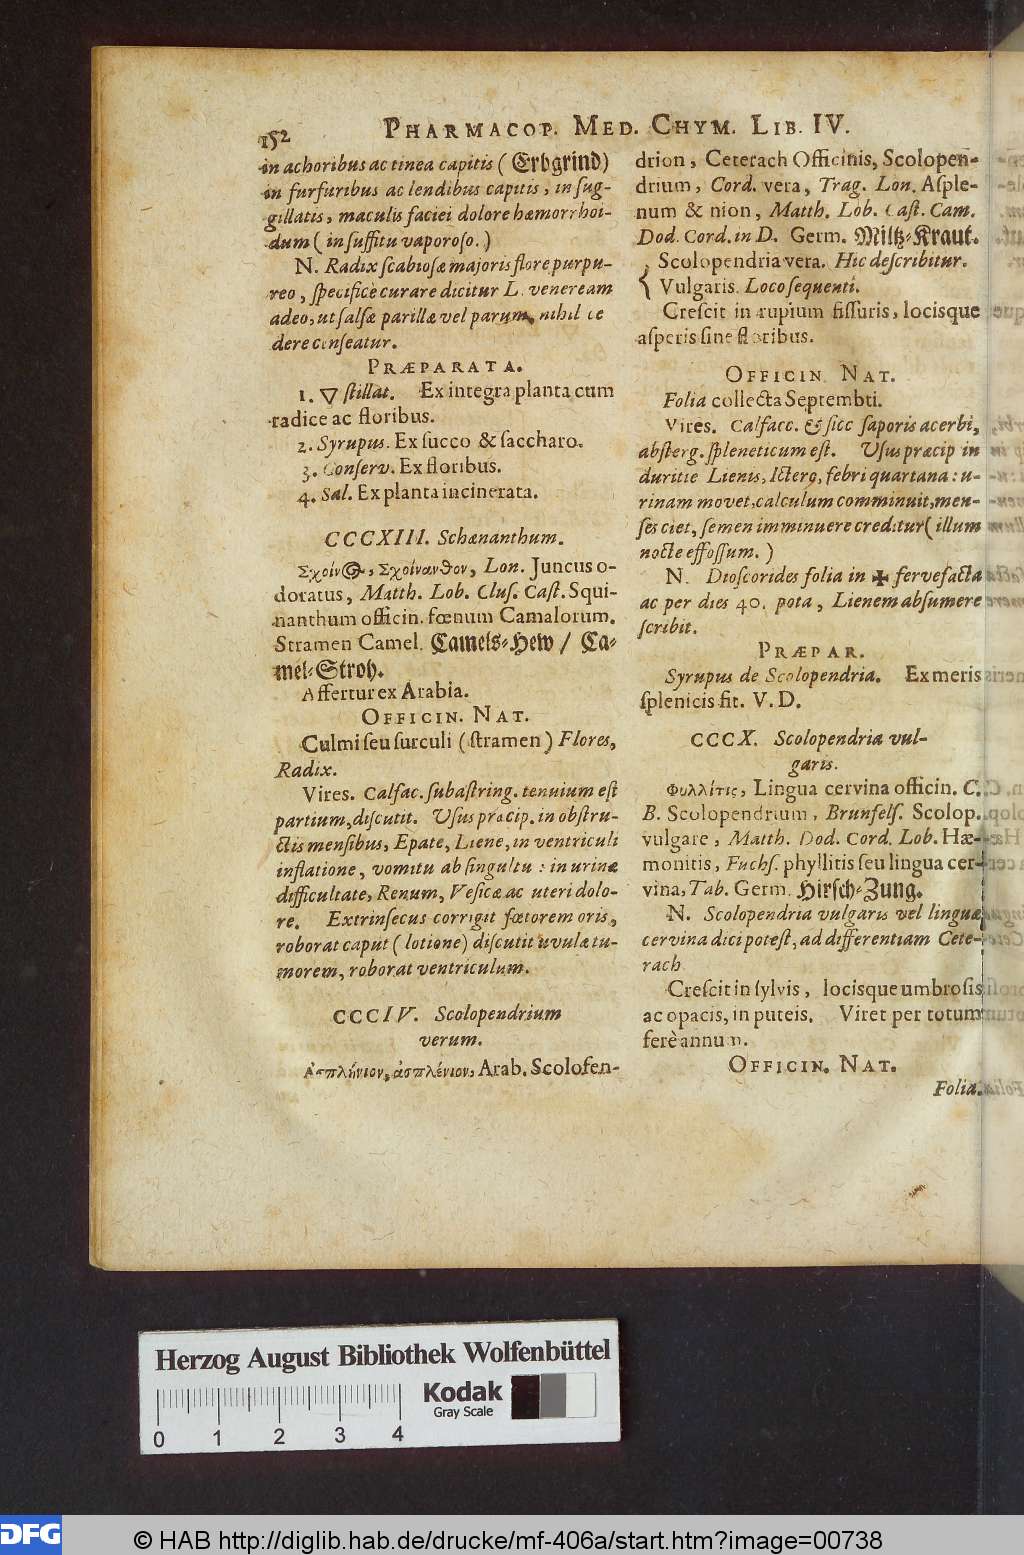 152
PHARMACOP. MED. CHYM. LIB. IV.
in achoribus ac tinea capitis (Erbgrind)
in furfuribus ac lendibus capitis, in sug-
gillatis, maculis faciei dolore hæmorrhoi-
dum (in suffitu vaporoso.)
N. Radix scabiosæ majoris flore purpu-
reo, specificè curare dicitur L. veneream
adeo, ut salsæ parillæ vel parum, nihil ce
dere censeatur.
PRÆPARATA.
1. ▽ stillat. Ex integra planta cum
radice ac floribus.
2. Syrupus. Ex succo & saccharo.
3. Conserv. Ex floribus.
4. Sal. Ex planta incinerata.
CCCXIII. Schænanthum.
Σχοίνος, Σχοίνανθον, Lon. Juncus o-
doratus, Matth. Lob. Clus. Cast. Squi-
nanthum officin. fœnum Camalorum.
Stramen Camel. Camels-Hew / Ca-
mel-Stroh.
Affertur ex Arabia.
OFFICIN. NAT.
Culmi seu surculi (stramen) Flores,
Radix.
Vires. Calfac. subastring. tenuium est
partium, discutit. Usus præcip. in obstru-
ctis mensibus, Epate, Liene, in ventriculi
inflatione, vomitu ab singultu: in urinæ
difficultate, Renum, Vesicæ ac uteri dolo-
re. Extrinsecus corrigit fœtorem oris,
roborat caput (lotione) discutit uvulæ tu-
morem, roborat ventriculum.
CCCIV. Scolopendrium
verum.
Ἀσπλήνιον, ἀσπλένιον, Arab. Scolofen-
drion, Ceterach Officinis, Scolopen-
drium, Cord. vera, Trag. Lon. Asple-
num & nion, Matth. Lob. Cast. Cam.
Dod. Cord. in D. Germ. Miltz-Kraut.
{ Scolopendria vera. Hic describitur.
Vulgaris. Loco sequenti.
Crescit in rupium fissuris, locisque
asperis sine floribus.
OFFICIN NAT.
Folia collecta Septembri.
Vires. Calfacc. & sicc saporis acerbi,
absterg. spleneticum est. Usus præcip in
duritie Lienis, Ictero, febri quartana: u-
rinam movet, calculum comminuit, men-
ses ciet, semen imminuere creditur (illum
nocte effossum.)
N. Dioscorides folia in ✠ fervefacta
ac per dies 40. pota, Lienem absumere
scribit.
PRÆPAR.
Syrupus de Scolopendria. Ex meris
splenicis fit. V. D.
CCCX. Scolopendria vul-
garis.
Φυλλίτις, Lingua cervina officin. C.
B. Scolopendrium, Brunfels. Scolop.
vulgare, Matth. Dod. Cord. Lob. Hæ-
monitis, Fuchs. phyllitis seu lingua cer-
vina, Tab. Germ. Hirsch-Zung.
N. Scolopendria vulgaris vel linguæ
cervina dici potest, ad differentiam Cete-
rach
Crescit in sylvis, locisque umbrosis
ac opacis, in puteis. Viret per totum
ferè annum.
OFFICIN. NAT.
Folia.
Herzog August Bibliothek Wolfenbüttel
Kodak
Gray Scale
0 1 2 3 4
DFG
© HAB http://diglib.hab.de/drucke/mf-406a/start.htm?image=00738